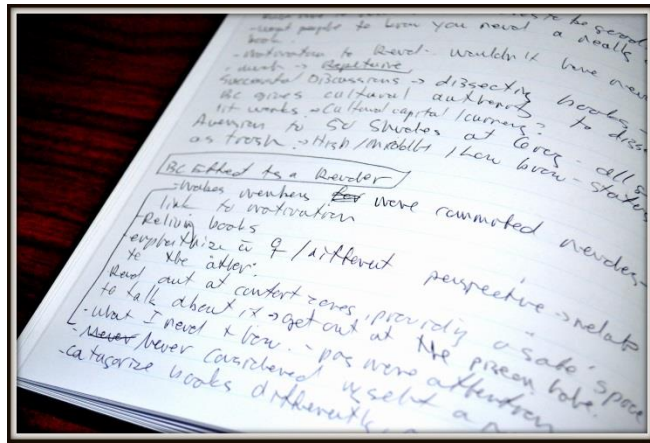 to be good
- want people to know you read a really
book.
- motivation to Read. wouldn't have
Repetitive
Successful Discussions → dissecting books -
BC gives cultural authority to
lit works → Cultural capital / currency.
Aversion to 50 Shades at
as trash. → High / middle / Low brow - status
BC Effect as a Reader
- Makes members more committed readers -
link to motivation
- Reliving books
- emphathize
/ different perspective → relate
to the other.
Read out of comfort zones, providing a safe space
to talk about it → get out of the pigeon hole.
- What I read & how. - pay more attention
- Never considered myself a
- catagorize books differently